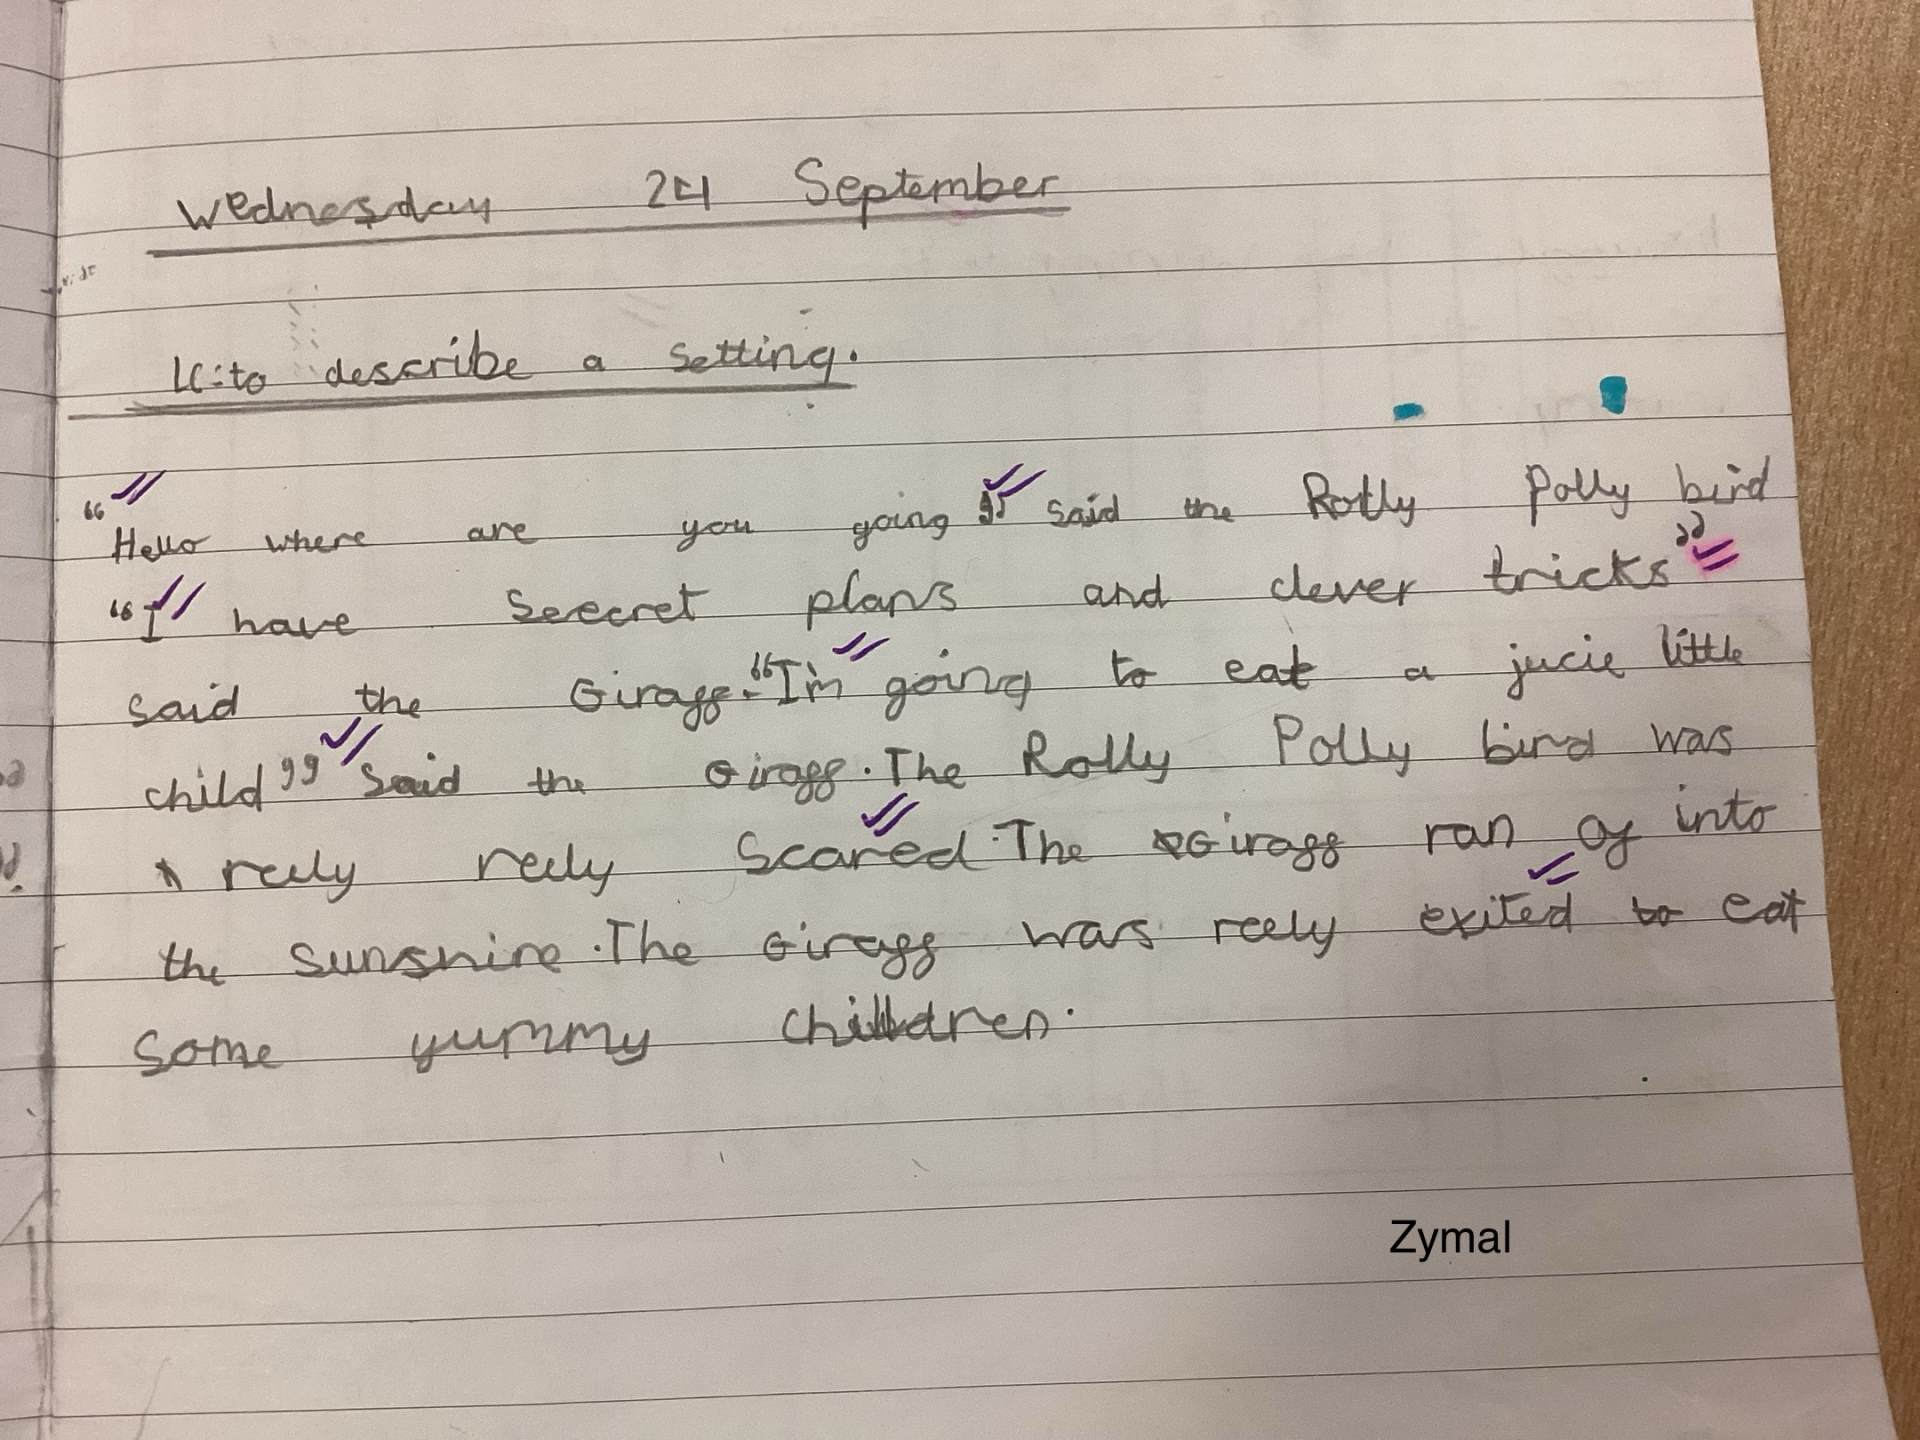 Wednesday 24 September
LC:to describe a setting.
“Hello where are you going” said the Rolly Polly bird
“I have Seecret plans and clever tricks”
said the Giraff.“I'm going to eat a jucie little
child” said the Giraff.The Rolly Polly bird was
reely reely Scared.The Giraff ran of into
the sunshine.The Giraff was reely exited to eat
some yummy children.
Zymal